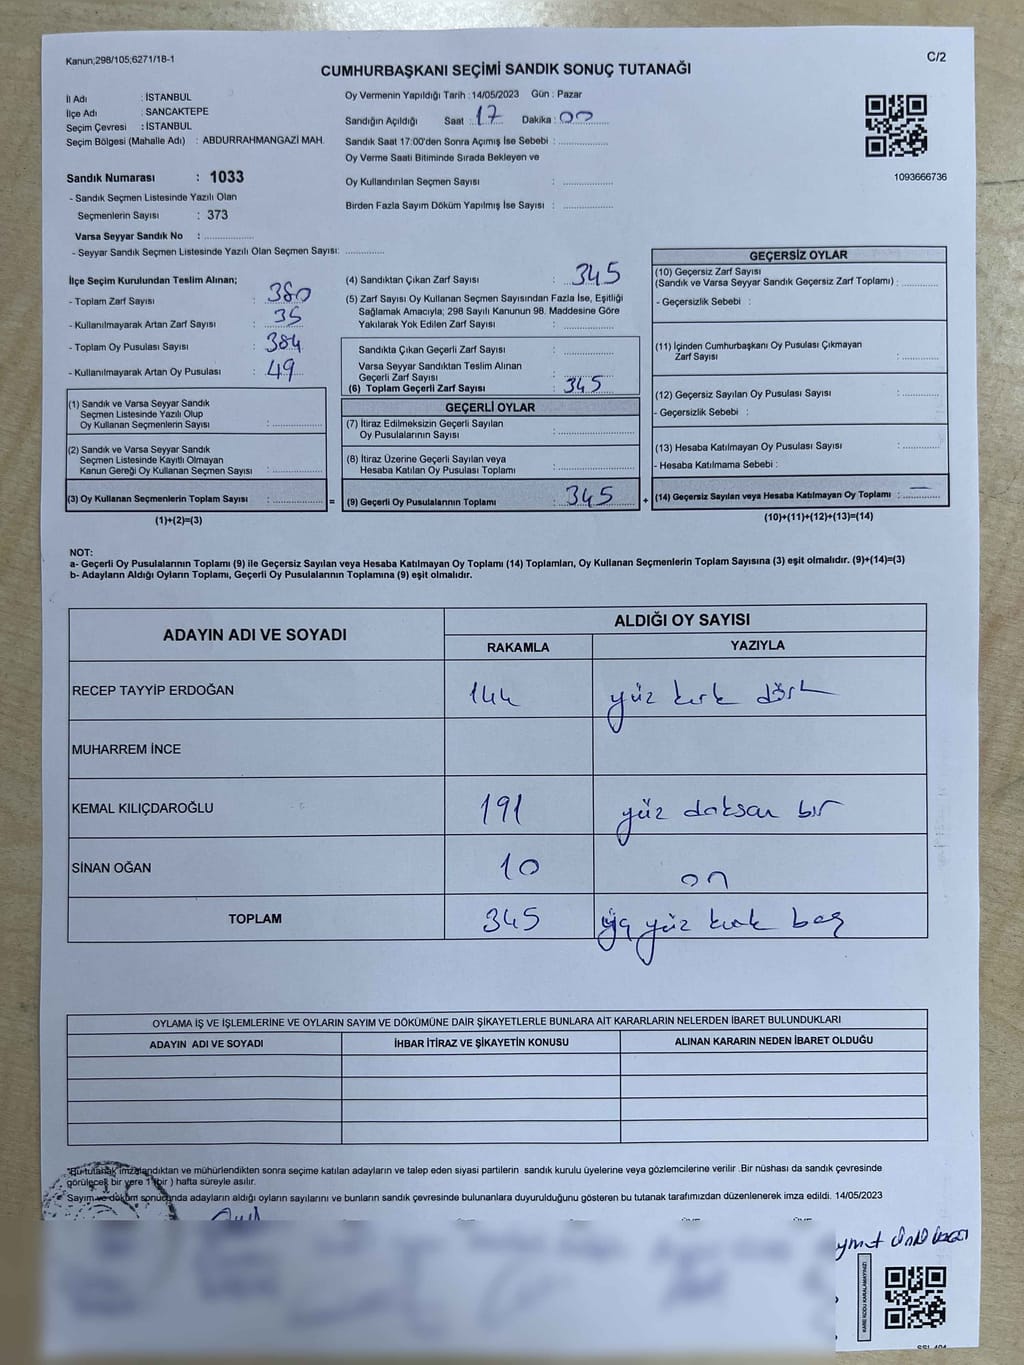 Kanun;298/105;6271/18-1
C/2
CUMHURBAŞKANI SEÇİMİ SANDIK SONUÇ TUTANAĞI
İl Adı : İSTANBUL
İlçe Adı : SANCAKTEPE
Seçim Çevresi : İSTANBUL
Seçim Bölgesi (Mahalle Adı) : ABDURRAHMANGAZİ MAH.
Sandık Numarası : 1033
- Sandık Seçmen Listesinde Yazılı Olan
Seçmenlerin Sayısı : 373
Varsa Seyyar Sandık No : ..............
- Seyyar Sandık Seçmen Listesinde Yazılı Olan Seçmen Sayısı: ............
Oy Vermenin Yapıldığı Tarih :14/05/2023 Gün : Pazar
Sandığın Açıldığı Saat : 17 Dakika : 00
Sandık Saat 17:00'den Sonra Açımış İse Sebebi : ...............
Oy Verme Saati Bitiminde Sırada Bekleyen ve
Oy Kullandırılan Seçmen Sayısı : ...............
Birden Fazla Sayım Döküm Yapılmış İse Sayısı : ...............
1093666736
İlçe Seçim Kurulundan Teslim Alınan;
- Toplam Zarf Sayısı : 380
- Kullanılmayarak Artan Zarf Sayısı : 35
- Toplam Oy Pusulası Sayısı : 384
- Kullanılmayarak Artan Oy Pusulası : 49
(1) Sandık ve Varsa Seyyar Sandık
Seçmen Listesinde Yazılı Olup
Oy Kullanan Seçmenlerin Sayısı : ...............
(2) Sandık ve Varsa Seyyar Sandık
Seçmen Listesinde Kayıtlı Olmayan
Kanun Gereği Oy Kullanan Seçmen Sayısı : ...............
(3) Oy Kullanan Seçmenlerin Toplam Sayısı : ............... =
(1)+(2)=(3)
(4) Sandıktan Çıkan Zarf Sayısı : 345
(5) Zarf Sayısı Oy Kullanan Seçmen Sayısından Fazla İse, Eşitliği
Sağlamak Amacıyla; 298 Sayılı Kanunun 98. Maddesine Göre
Yakılarak Yok Edilen Zarf Sayısı : ...............
Sandıkta Çıkan Geçerli Zarf Sayısı : ...............
Varsa Seyyar Sandıktan Teslim Alınan
Geçerli Zarf Sayısı : ...............
(6) Toplam Geçerli Zarf Sayısı : 345
GEÇERLİ OYLAR
(7) İtiraz Edilmeksizin Geçerli Sayılan
Oy Pusulalarının Sayısı : ...............
(8) İtiraz Üzerine Geçerli Sayılan veya
Hesaba Katılan Oy Pusulası Toplamı : ...............
(9) Geçerli Oy Pusulalarının Toplamı : 345 +
GEÇERSİZ OYLAR
(10) Geçersiz Zarf Sayısı
(Sandık ve Varsa Seyyar Sandık Geçersiz Zarf Toplamı) : ............
- Geçersizlik Sebebi :
(11) İçinden Cumhurbaşkanı Oy Pusulası Çıkmayan
Zarf Sayısı : ............
(12) Geçersiz Sayılan Oy Pusulası Sayısı : ............
- Geçersizlik Sebebi :
(13) Hesaba Katılmayan Oy Pusulası Sayısı : ............
- Hesaba Katılmama Sebebi :
(14) Geçersiz Sayılan veya Hesaba Katılmayan Oy Toplamı : —
(10)+(11)+(12)+(13)=(14)
NOT:
a- Geçerli Oy Pusulalarının Toplamı (9) ile Geçersiz Sayılan veya Hesaba Katılmayan Oy Toplamı (14) Toplamları, Oy Kullanan Seçmenlerin Toplam Sayısına (3) eşit olmalıdır. (9)+(14)=(3)
b- Adayların Aldığı Oyların Toplamı, Geçerli Oy Pusulalarının Toplamına (9) eşit olmalıdır.
ADAYIN ADI VE SOYADI ALDIĞI OY SAYISI
RAKAMLA YAZIYLA
RECEP TAYYİP ERDOĞAN 144 yüz kırk dört
MUHARREM İNCE
KEMAL KILIÇDAROĞLU 191 yüz doksan bir
SİNAN OĞAN 10 on
TOPLAM 345 üç yüz kırk beş
OYLAMA İŞ VE İŞLEMLERİNE VE OYLARIN SAYIM VE DÖKÜMÜNE DAİR ŞİKAYETLERLE BUNLARA AİT KARARLARIN NELERDEN İBARET BULUNDUKLARI
ADAYIN ADI VE SOYADI İHBAR İTİRAZ VE ŞİKAYETİN KONUSU ALINAN KARARIN NEDEN İBARET OLDUĞU
Bu tutanak imzalandıktan ve mühürlendikten sonra seçime katılan adayların ve talep eden siyasi partilerin sandık kurulu üyelerine veya gözlemcilerine verilir .Bir nüshası da sandık çevresinde
görülecek bir yere 1 (bir ) hafta süreyle asılır.
Sayım ve döküm sonucunda adayların aldığı oyların sayılarını ve bunların sandık çevresinde bulunanlara duyurulduğunu gösteren bu tutanak tarafımızdan düzenlenerek imza edildi. 14/05/2023
KARE KODU KARALAMAYINIZ!